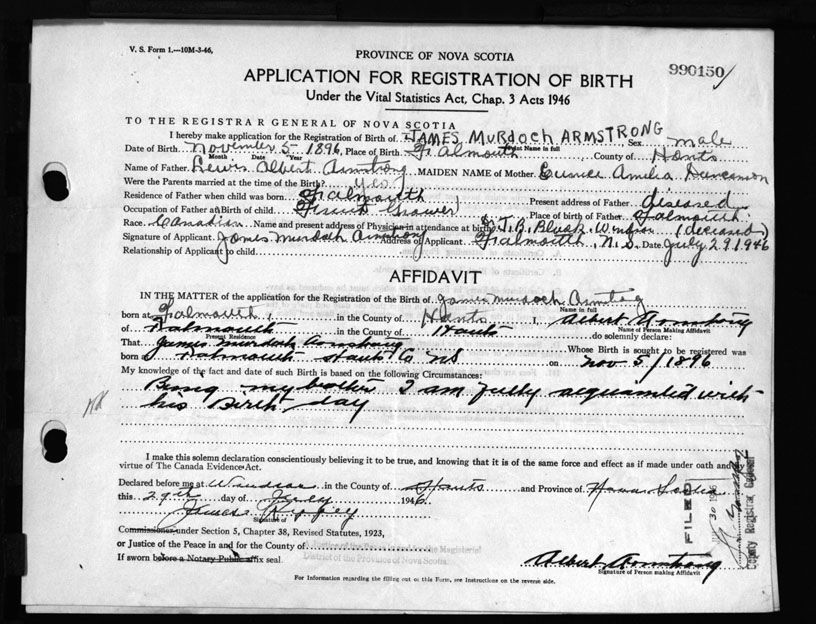 V. S. Form 1.—10M-3-46.
PROVINCE OF NOVA SCOTIA
990150
APPLICATION FOR REGISTRATION OF BIRTH
Under the Vital Statistics Act, Chap. 3 Acts 1946
TO THE REGISTRAR GENERAL OF NOVA SCOTIA
I hereby make application for the Registration of Birth of JAMES MURDOCH ARMSTRONG Sex male
Print Name in full
Date of Birth November 5 1896, Place of Birth Falmouth County of Hants
Month Date Year
Name of Father Lewis Albert Armstrong MAIDEN NAME of Mother Eunice Amelia Duncanson
Were the Parents married at the time of the Birth? yes
Residence of Father when child was born Falmouth Present address of Father diseased
Occupation of Father at Birth of child Fruit Grower Place of birth of Father Falmouth
Race Canadian Name and present address of Physician in attendance at birth J. B. Black Windsor (deceased)
Signature of Applicant James Murdoch Armstrong Address of Applicant Falmouth, N.S. Date July 29, 1946
Relationship of Applicant to child
AFFIDAVIT
IN THE MATTER of the application for the Registration of the Birth of James Murdoch Armstrong
Name in full
born at Falmouth, in the County of Hants I, Albert Armstrong
Name of Person Making Affidavit
of Falmouth in the County of Hants do solemnly declare:
Present Residence
That James Murdoch Armstrong Whose Birth is sought to be registered was
born at Falmouth Hants Co NS on Nov 5 / 1896
My knowledge of the fact and date of such Birth is based on the following Circumstances:
Being my brother I am fully acquainted with
his Birth day
I make this solemn declaration conscientiously believing it to be true, and knowing that it is of the same force and effect as if made under oath and by
virtue of The Canada Evidence Act.
Declared before me at Windsor in the County of Hants and Province of Nova Scotia
this 29th day of July 1946
James
Signature of
Commissioner under Section 5, Chapter 38, Revised Statutes, 1923,
or Justice of the Peace in and for the County of
Justice of the Peace and for the Magisterial
District of the Province of Nova Scotia
If sworn before a Notary Public affix seal
Albert Armstrong
Signature of Person making Affidavit
FILED
30
Deputy Registrar General
For Information regarding the filling out of this Form, see Instructions on the reverse side.